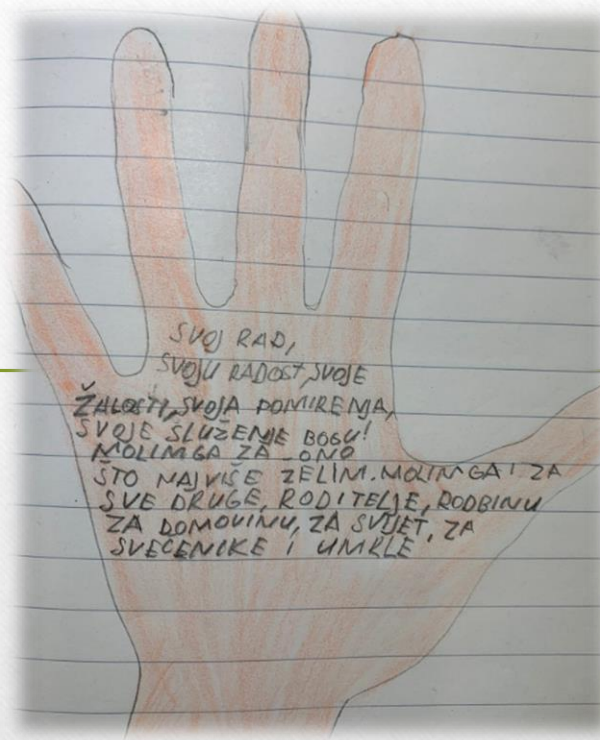 SVOJ RAD,
SVOJU RADOST, SVOJE
ŽALOSTI, SVOJA POMIRENJA,
SVOJE SLUŽENJE BOGU!
MOLIMGA ZA ONO
ŠTO NAJVIŠE ZELIM. MOLIMGA I ZA
SVE DRUGE, RODITELJE, RODBINU
ZA DOMOVINU, ZA SVIJET, ZA
SVEĆENIKE I UMRLE